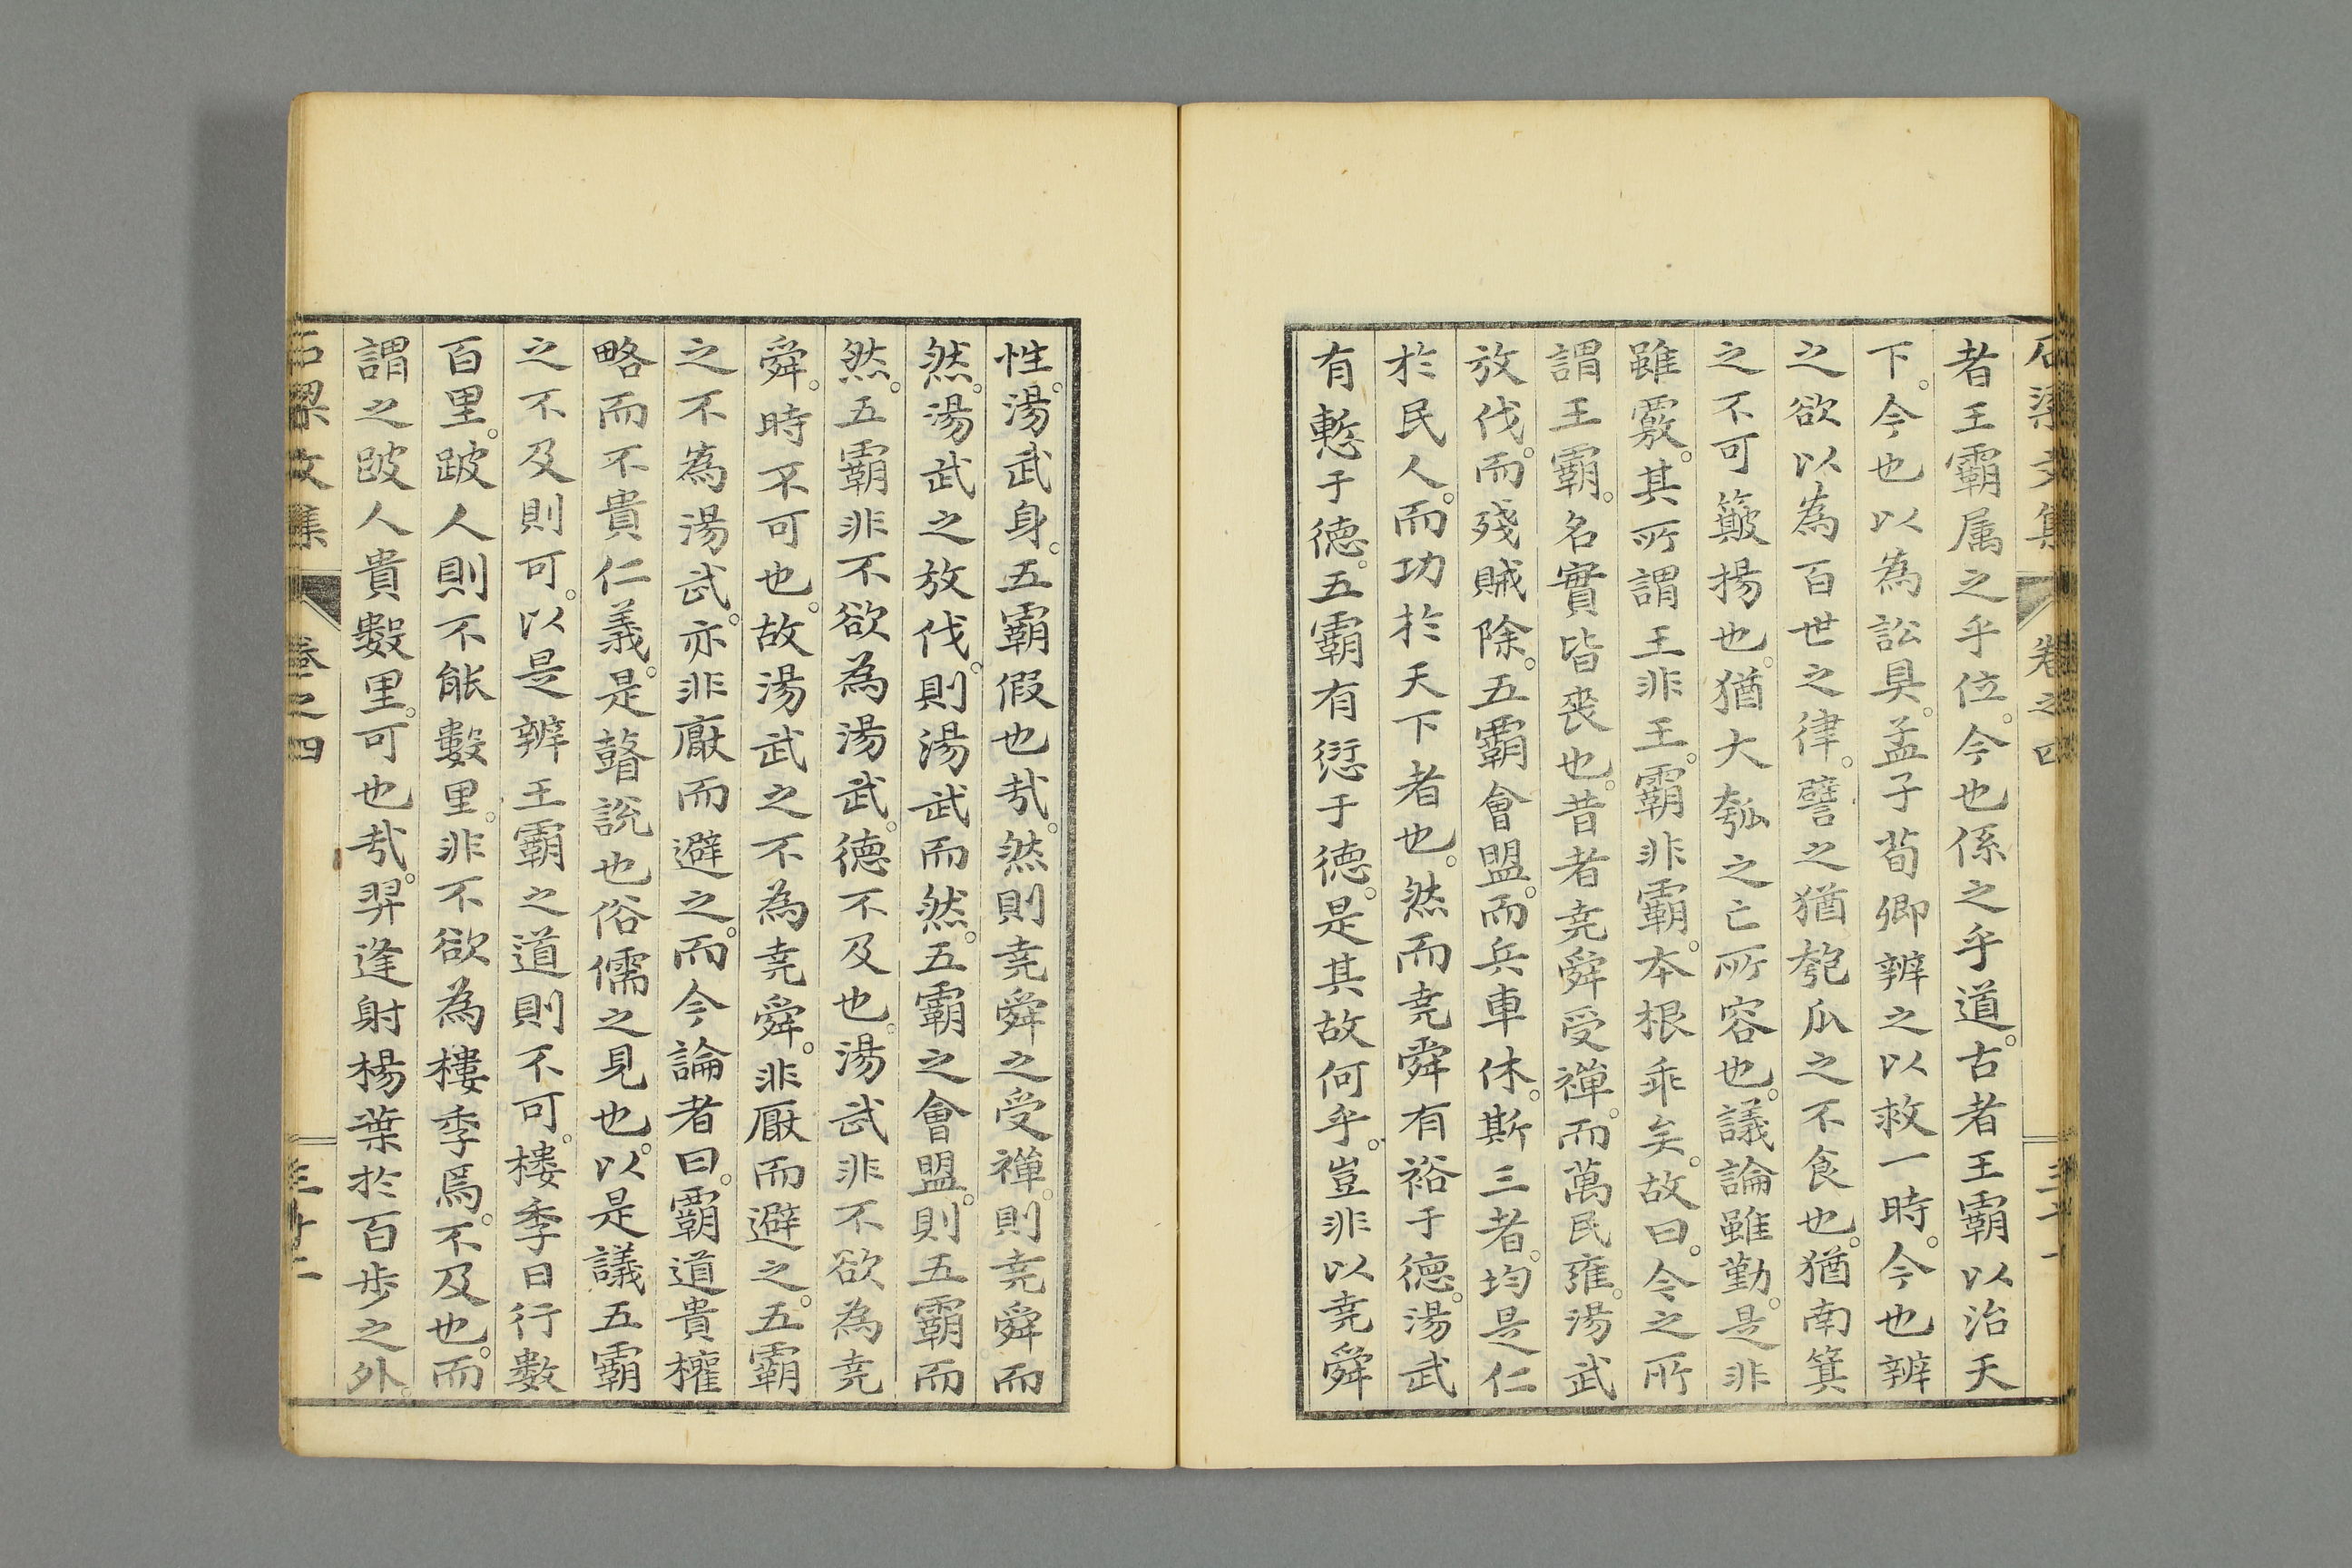 石梁文集 卷之四
者王霸属之乎位。今也係之乎道。古者王霸以治天
下。今也以為訟具。孟子荀卿辨之以救一時。今也辨
之欲以為百世之律。譬之猶匏瓜之不食也。猶南箕
之不可簸揚也。猶大瓠之亡所容也。議論雖勤。是非
雖覈。其所謂王非王。霸非霸。本根乖矣。故曰。今之所
謂王霸。名實皆喪也。昔者尭舜受禪。而萬民雍。湯武
放伐。而殘賊除。五霸會盟。而兵車休。斯三者。均是仁
於民人。而功於天下者也。然而尭舜有裕于德。湯武
有慙于德。五霸有愆于德。是其故何乎。豈非以尭舜
性。湯武身。五霸假也哉。然則尭舜之受禪。則尭舜而
然。湯武之放伐。則湯武而然。五霸之會盟。則五霸而
然。五霸非不欲為湯武。德不及也。湯武非不欲為尭
舜。時不可也。故湯武之不為尭舜。非厭而避之。五霸
之不為湯武。亦非厭而避之。而今論者曰。霸道貴權
略而不貴仁義。是瞽說也俗儒之見也。以是議五霸
之不及則可。以是辨王霸之道則不可。樓季日行數
百里。跛人則不能數里。非不欲為樓季焉。不及也。而
謂之跛人貴數里。可也哉。羿逢射楊葉於百步之外。
石梁文集 卷之四 三十二